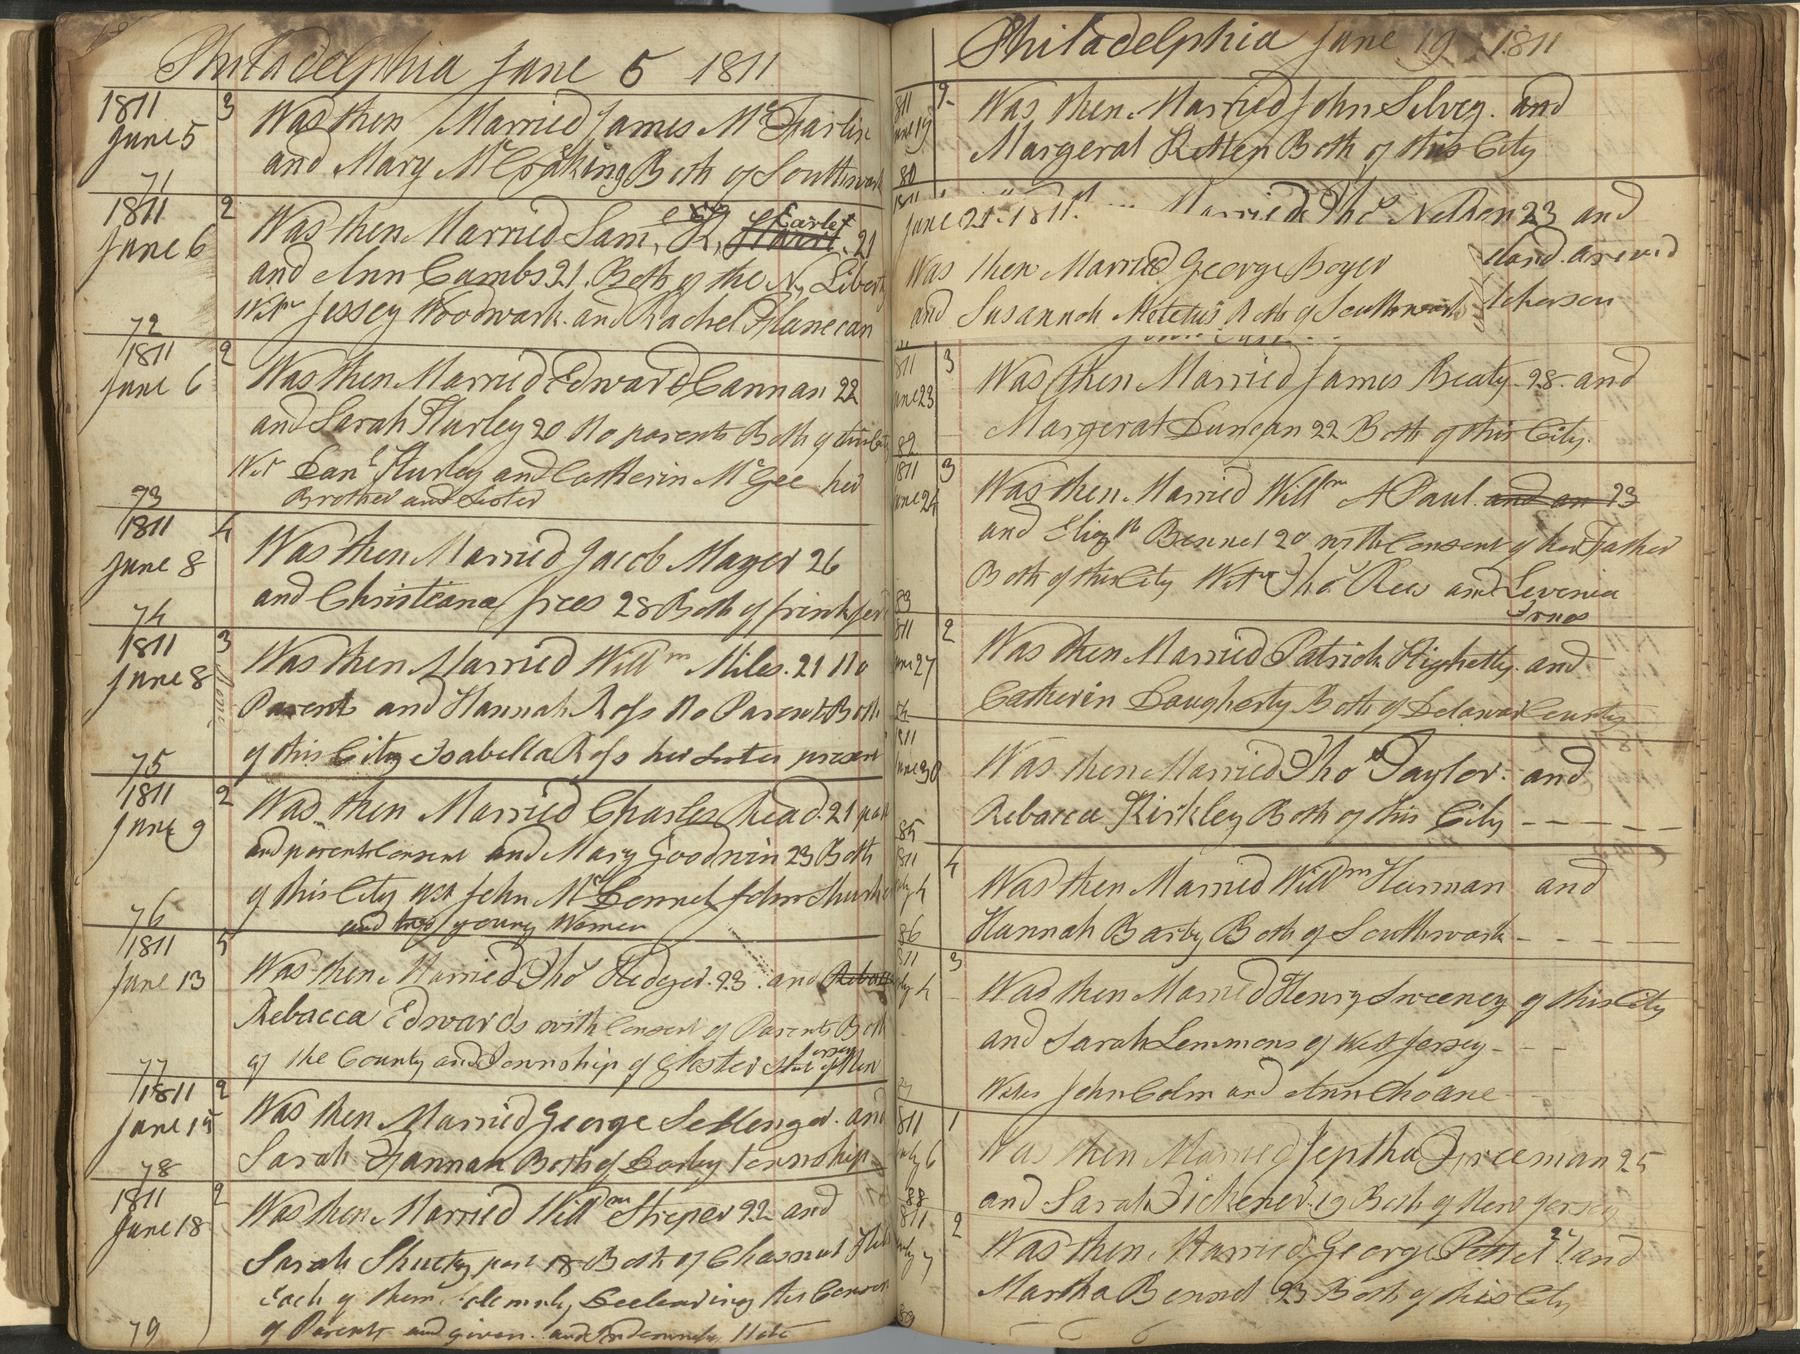 Philadelphia June 5 1811
1811 3 Was then Married James McFarlin
June 5 and Mary McCraking Both of Southwark
71
1811 2 Was then Married Sam. R. Earle 21
June 6 and Ann Cambs 21. Both of the N. Libert
Wit Jessey Woodwark and Rachel Flanecan
72
1811 2 Was then Married Edward Cannan 22
June 6 and Sarah Hurley 20 No parents Both of this City
Wit Danl Hurley and Catherin McGee her
Brother and Sister
73
1811 4 Was then Married Jacob Mayer 26
June 8 and Christeana frees 28 Both of frinkford
74
1811 3 Was then Married Willm Miles. 21 No
June 8 Parent and Hannah Ross No Parent Both
of this City Isabella Ross her Sister present
75
1811 2 Was then Married Charles head. 21 past
June 9 and parents Consent and Mary Goodwin 23 Both
of this City John McConnel John
and two young Women
76
1811 5
June 13 Was then Married Thos Hedger. 23. and
Rebacca Edwards with Consent of Parents Both
of the County and Township of Gloster State of New Jersey
77
1811 2 Was then Married George Sellenger. and
June 15 Sarah Hannah Both of Darby township
78
1811 2 Was then Married Willm Streper 22 and
June 18 Sarah Shucky past 18 Both of Chasnut Hill
Each of them Solemnly Declearing the Consent
of Parents and given. and Indemnity Note
79
Philadelphia June 19 1811
1811 2 Was then Married John Selvey. and
June 19 Margerat Ketten Both of this City
80
Married Thos Nelson 23 and
June 21. 1811.
Was then Married George Boyer
and Susannah Meletus Both of Southwark
1811 3 Was then Married James Beaty. 28. and
June 23 Margerat Duncan 22 Both of this City.
82
1811 3 Was then Married Willm A Paul. and an 23
June 24 and Elizth Bennet 20 with Consent of her Father
Both of this City Witn Thos Rees and Levenia
Irnos
83
1811 2 Was then Married Patrick Highetty. and
June 27 Catherin Daugherty Both of Delawar County
84
1811
June 30 Was then Married Thos Taylor. and
Rebacca Kirkley Both of this City
85
1811 4 Was then Married Willm Herman and
July 4 Hannah Barby Both of Southwark
86
1811 3
July 4 Was then Married Henry Sweeney of this City
and Sarah Lemmons of West Jersey
Wites John Colm and Ann Choane
87
1811 1
July 6 Was then Married Jeptha Freeman 25
and Sarah Dickener. 19 Both of New Jersey
88
1811 2
July 7 Was then Married George Pettet 27. and
Martha Bennet 23 Both of this City
89